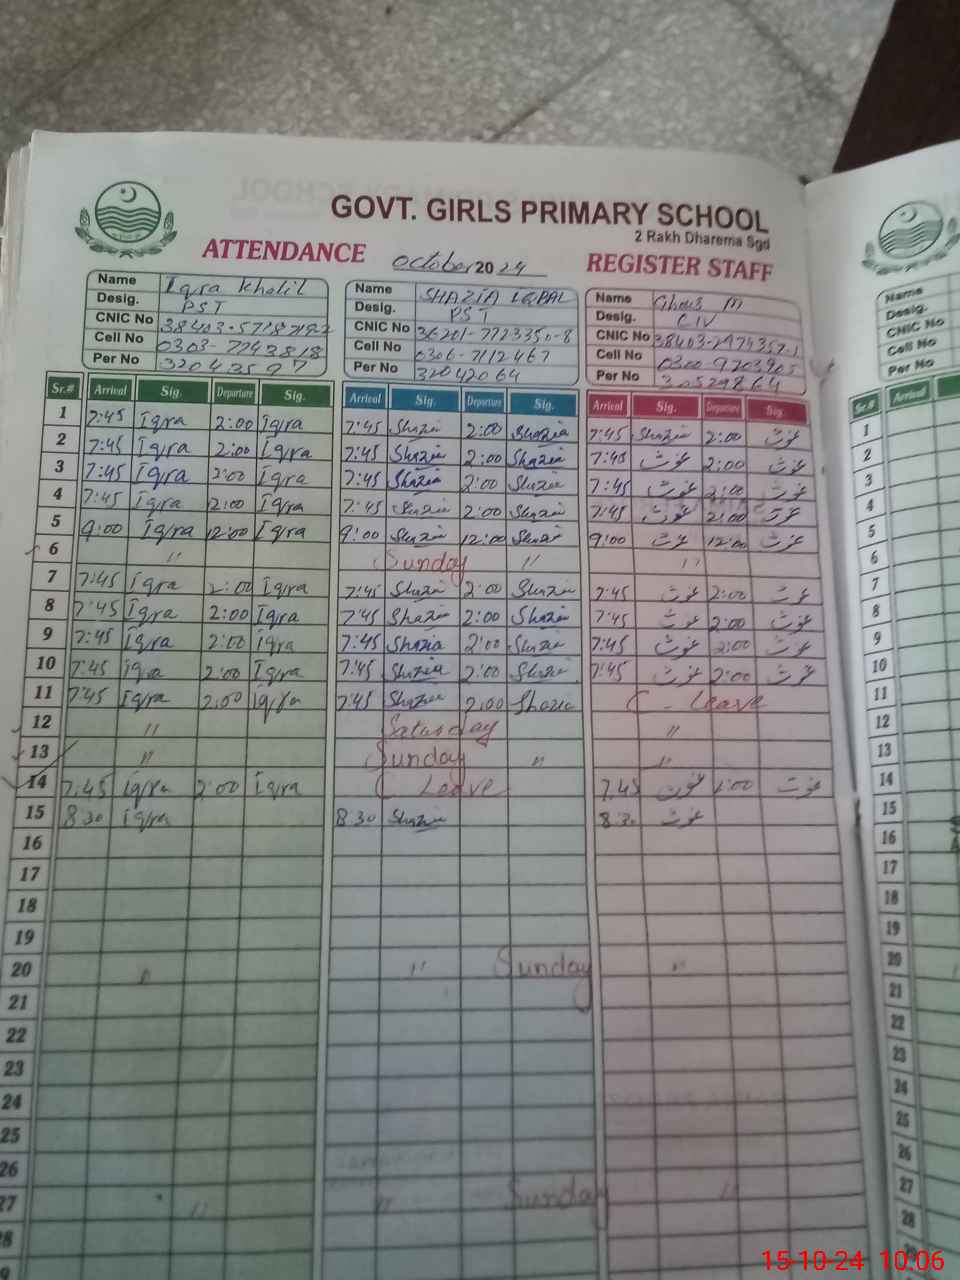 GOVT. GIRLS PRIMARY SCHOOL
2 Rakh Dharema Sgd
ATTENDANCE October 2024 REGISTER STAFF
Name Iqra Khalil Name SHAZIA IQBAL Name Ghous M
Desig. PST Desig. PST Desig. CIV
CNIC No CNIC No 36201-7723350-8 CNIC No 38403-2974357-1
Cell No 0303-7743818 Cell No 0306-7112467 Cell No
Per No Per No 32042064 Per No 30529864
Sr.# Arrival Sig. Departure Sig. Arrival Sig. Departure Sig. Arrival Sig. Departure Sig.
1 7:45 Iqra 2:00 Iqra 7:45 Shazia 2:00 Shazia 7:45 Shazia 2:00 غوث
2 7:45 Iqra 2:00 Iqra 7:45 Shazia 2:00 Shazia 7:45 غوث 2:00 غوث
3 7:45 Iqra 2:00 Iqra 7:45 Shazia 2:00 Shazia 7:45 غوث 2:00 غوث
4 7:45 Iqra 2:00 Iqra 7:45 Shazia 2:00 Shazia 7:45 غوث 2:00 غوث
5 9:00 Iqra 12:00 Iqra 9:00 Shazia 12:00 Shazia 9:00 غوث 12:00 غوث
6 " Sunday " "
7 7:45 Iqra 2:00 Iqra 7:45 Shazia 2:00 Shazia 7:45 غوث 2:00 غوث
8 7:45 Iqra 2:00 Iqra 7:45 Shazia 2:00 Shazia 7:45 غوث 2:00 غوث
9 7:45 Iqra 2:00 Iqra 7:45 Shazia 2:00 Shazia 7:45 غوث 2:00 غوث
10 7:45 Iqra 2:00 Iqra 7:45 Shazia 2:00 Shazia 7:45 غوث 2:00 غوث
11 7:45 Iqra 2:00 Iqra 7:45 Shazia 2:00 Shazia C - Leave
12 " Saturday "
13 " Sunday " "
14 7:45 Iqra 2:00 Iqra C Leave 7:45 غوث غوث
15 8:30 Iqra 8:30 Shazia 8:30 غوث
16
17
18
19
20 " " Sunday "
21
22
23
24
25
26
27 " " Sunday "
28
Name
Desig.
CNIC No
Cell No
Per No
Sr.# Arrival
1
2
3
4
5
6
7
8
9
10
11
12
13
14
15
16
17
18
19
20
21
22
23
24
25
26
27
28
15-10-24 10:06